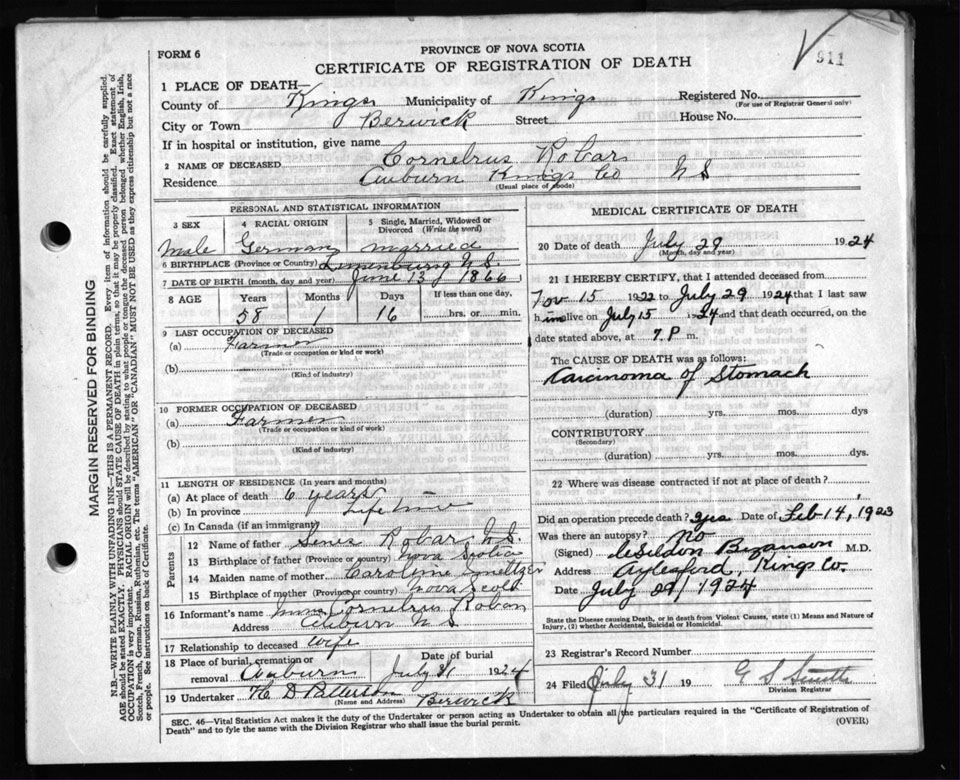 911
FORM 6
PROVINCE OF NOVA SCOTIA
CERTIFICATE OF REGISTRATION OF DEATH
1 PLACE OF DEATH—
County of Kings Municipality of Kings Registered No.
(For use of Registrar General only)
City or Town Berwick Street: House No.
If in hospital or institution, give name
2 NAME OF DECEASED Cornelius Robar
Residence Auburn Kings Co N S
(Usual place of abode)
PERSONAL AND STATISTICAL INFORMATION
3 SEX 4 RACIAL ORIGIN 5 Single, Married, Widowed or Divorced (Write the word)
Male German married
6 BIRTHPLACE (Province or Country) Lunenburg N.S.
7 DATE OF BIRTH (month, day and year) June 13 1866
8 AGE Years Months Days If less than one day,
58 1 16 hrs. or min.
9 LAST OCCUPATION OF DECEASED
(a) Farmer
(Trade or occupation or kind or work)
(b)
(Kind of industry)
10 FORMER OCCUPATION OF DECEASED
(a) Farmer
(Trade or occupation or kind of work)
(b)
(Kind of industry)
11 LENGTH OF RESIDENCE (In years and months)
(a) At place of death 6 years
(b) In province Life time
(c) In Canada (if an immigrant)
Parents
12 Name of father Robar N.S.
13 Birthplace of father (Province or country) Nova Scotia
14 Maiden name of mother Caroline
15 Birthplace of mother (Province or country) Nova Scoti
16 Informant's name Mrs Cornelius Robar
Address Auburn N S
17 Relationship to deceased wife
18 Place of burial, cremation or removal Auburn Date of burial July 31 1924
19 Undertaker Berwick
(Name and Address)
MEDICAL CERTIFICATE OF DEATH
20 Date of death July 29 1924
(Month, day and year)
21 I HEREBY CERTIFY, that I attended deceased from
15 1922 to July 29 1924 that I last saw
him alive on July 15 1924 and that death occurred, on
date stated above, at 7 P m.
The CAUSE OF DEATH was as follows:
Carcinoma of Stomach
(duration) yrs. mos. dys
CONTRIBUTORY
(Secondary)
(duration) yrs. mos. dys.
22 Where was disease contracted if not at place of death?
Did an operation precede death? yes Date of Feb 14, 1923
Was there an autopsy? No
(Signed) M.D.
Address Aylesford, Kings Co.
Date July 29/1924
State the Disease causing Death, or in death from Violent Causes, state (1) Means and Nature of Injury, (2) whether Accidental, Suicidal or Homicidal.
23 Registrar's Record Number
24 Filed July 31 19 G S Smith
Division Registrar
SEC. 46—Vital Statistics Act makes it the duty of the Undertaker or person acting as Undertaker to obtain all the particulars required in the "Certificate of Registration of
Death" and to fyle the same with the Division Registrar who shall issue the burial permit. (OVER)
MARGIN RESERVED FOR BINDING
N.B.—WRITE PLAINLY WITH UNFADING INK—THIS IS A PERMANENT RECORD. Every item of information should be carefully supplied.
AGE should be stated EXACTLY. PHYSICIANS should STATE CAUSE OF DEATH in plain terms, so that it may be properly classified. Exact statement of
OCCUPATION is very important. RACIAL ORIGIN will be described by stating to what people or tongue the deceased person belonged whether English, Irish,
Scotch, French, German, Russian, Ruthenian, etc. The terms "AMERICAN" OR "CANADIAN" MUST NOT BE USED as they express citizenship but not a race
or people. See instructions on back of Certificate.